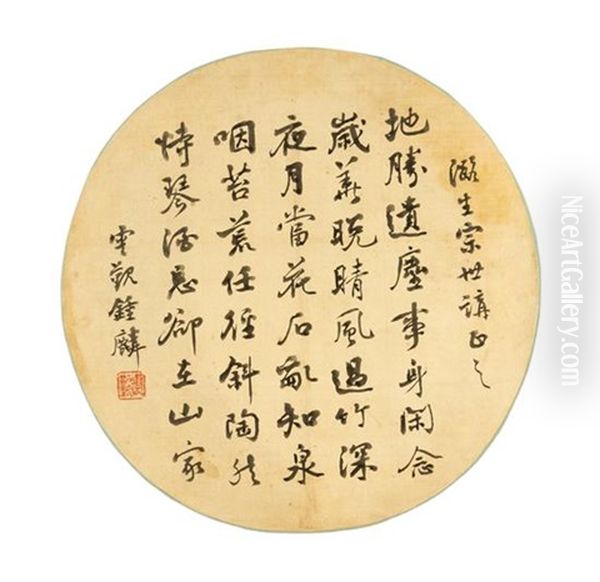 生宗世講正之
地勝遺塵事身閑念
歲華晚晴風過竹深
夜月當花石亂知泉
咽苔荒任徑斜陶然
恃琴酒忘卻在山家
雲覲鍾麟
NiceArtGallery.com